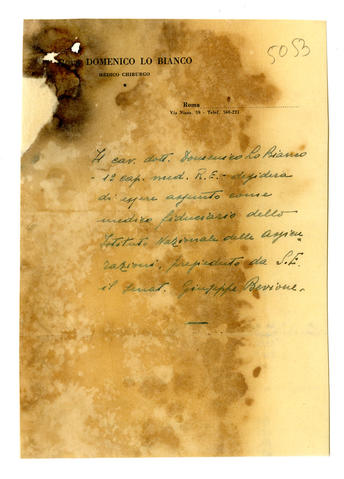 5053
DOMENICO LO BIANCO
MEDICO CHIRURGO
Roma
Via Nizza, 59 - Telef.
Il cav. dott. Domenico Lo Bianco
- 1º cap. med. R. E. - desidera
di essere assunto come
medico fiduciario dello
Istituto Nazionale delle Assicu
razioni, presieduto da S. E.
il Senat. Giuseppe Bevione.